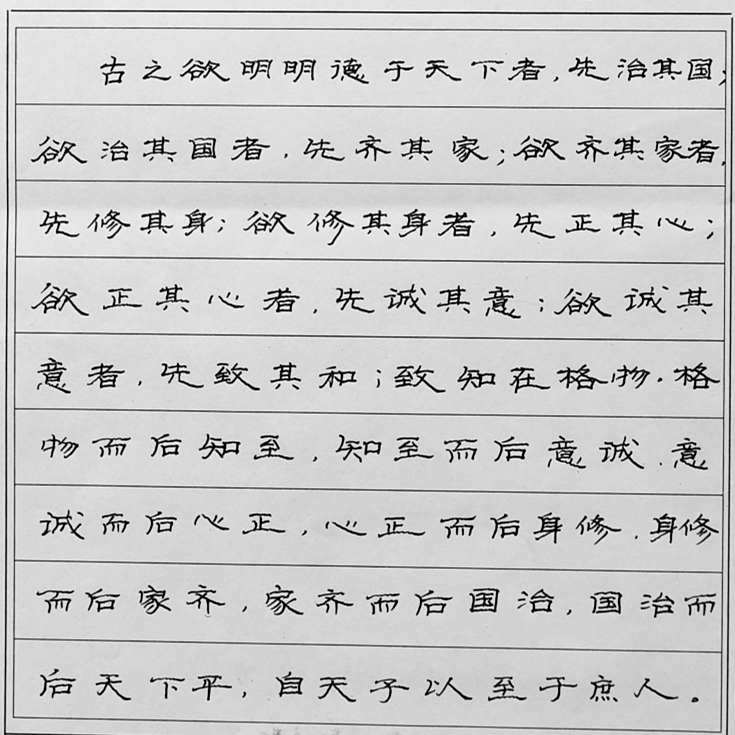 古之欲明明德于天下者,先治其国;
欲治其国者,先齐其家;欲齐其家者,
先修其身;欲修其身者,先正其心;
欲正其心者,先诚其意;欲诚其
意者,先致其和;致知在格物.格
物而后知至,知至而后意诚.意
诚而后心正,心正而后身修.身修
而后家齐,家齐而后国治,国治而
后天下平,自天子以至于庶人。